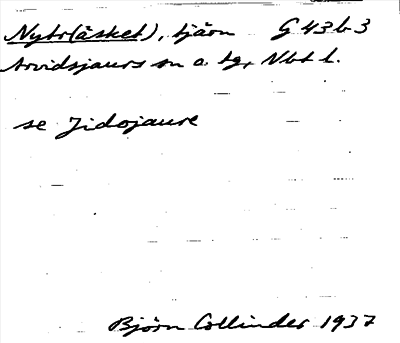 Nybr(äsket), tjärn G 43 b 3
Arvidsjaurs sn o. tg, Nbt l.
se Jidojaure
Björn Collinder 1937